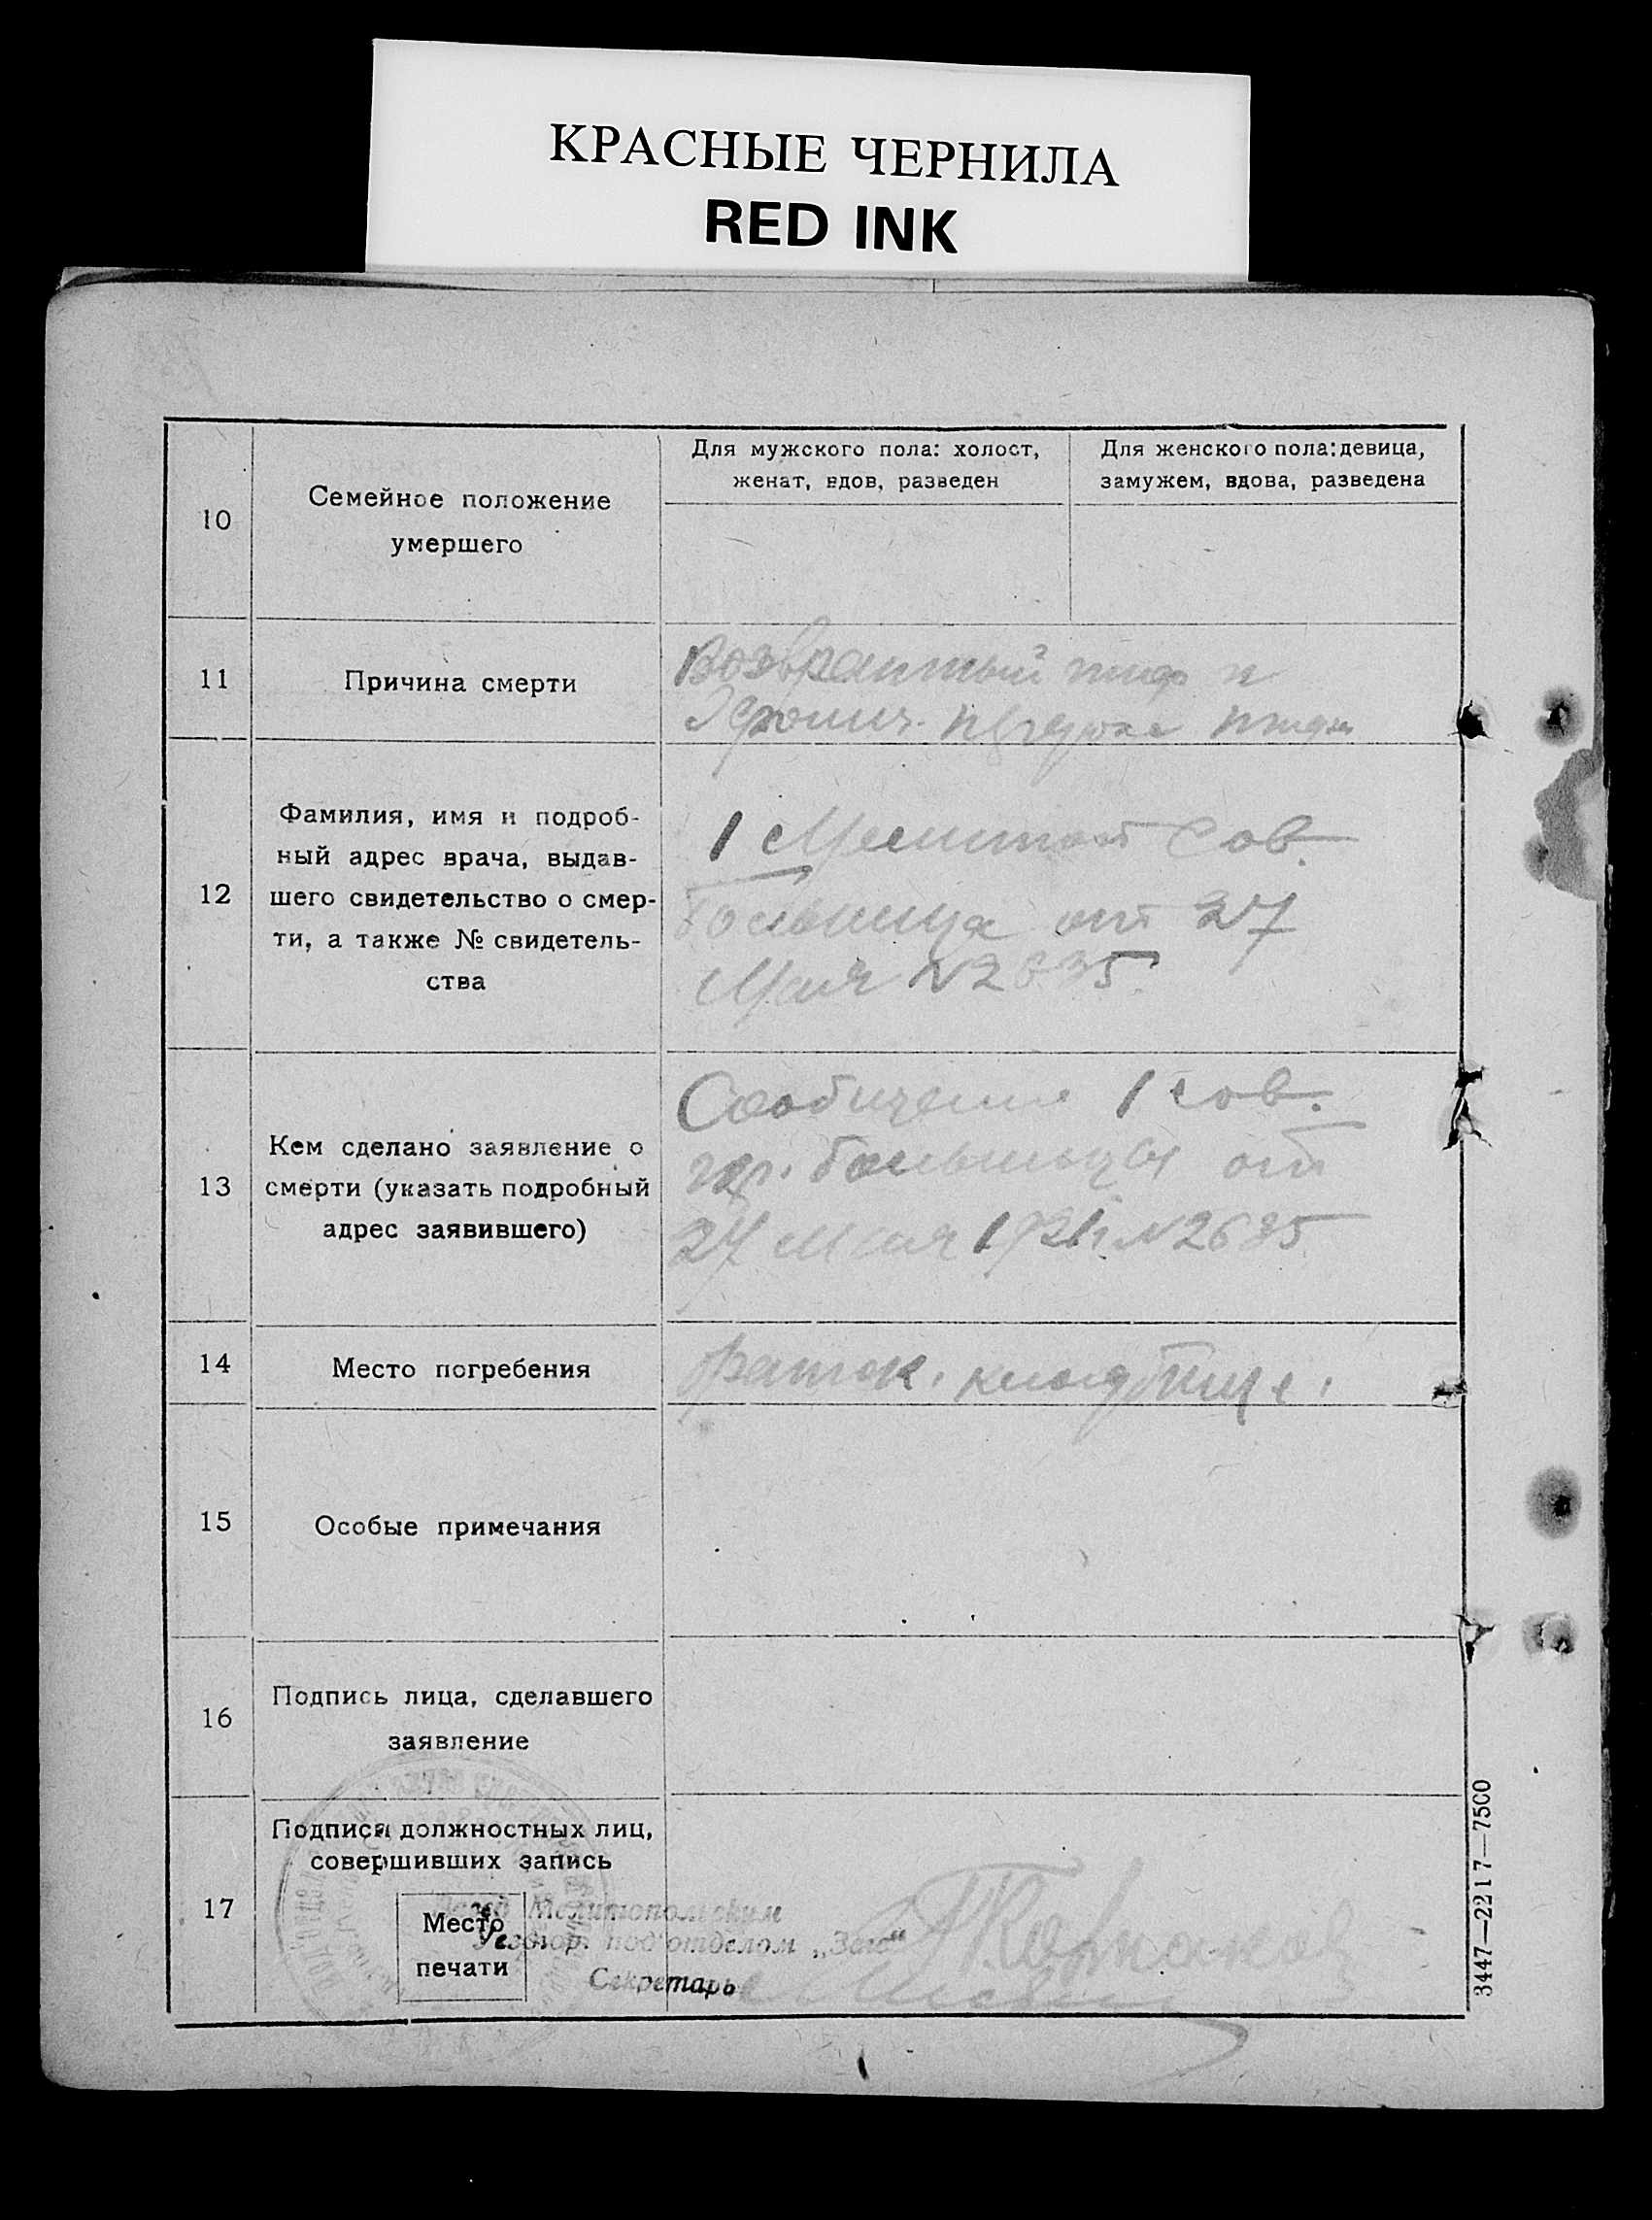 КРАСНЫЕ ЧЕРНИЛА
RED INK
10
Семейное положение
умершего
Для мужского пола: холост,
женат, вдов, разведен
Для женского пола: девица,
замужем, вдова, разведена
11
Причина смерти
Возвратный тиф и
12
Фамилия, имя и подроб-
ный адрес врача, выдав-
шего свидетельство о смер-
ти, а также № свидетель-
ства
1 Мелитоп Сов.
больница от 27
Мая N2635
13
Кем сделано заявление о
смерти (указать подробный
адрес заявившего)
Сообщение 1 сов.
гор. больницы от
27 Мая N2635
14
Место погребения
кладбище.
15
Особые примечания
16
Подпись лица, сделавшего
заявление
17
Подписи должностных лиц,
совершивших запись
Место
печати
Зав. Мелитопольским
Уезгор. под'отделом „Загс"
Секретарь
3447—2217—7500